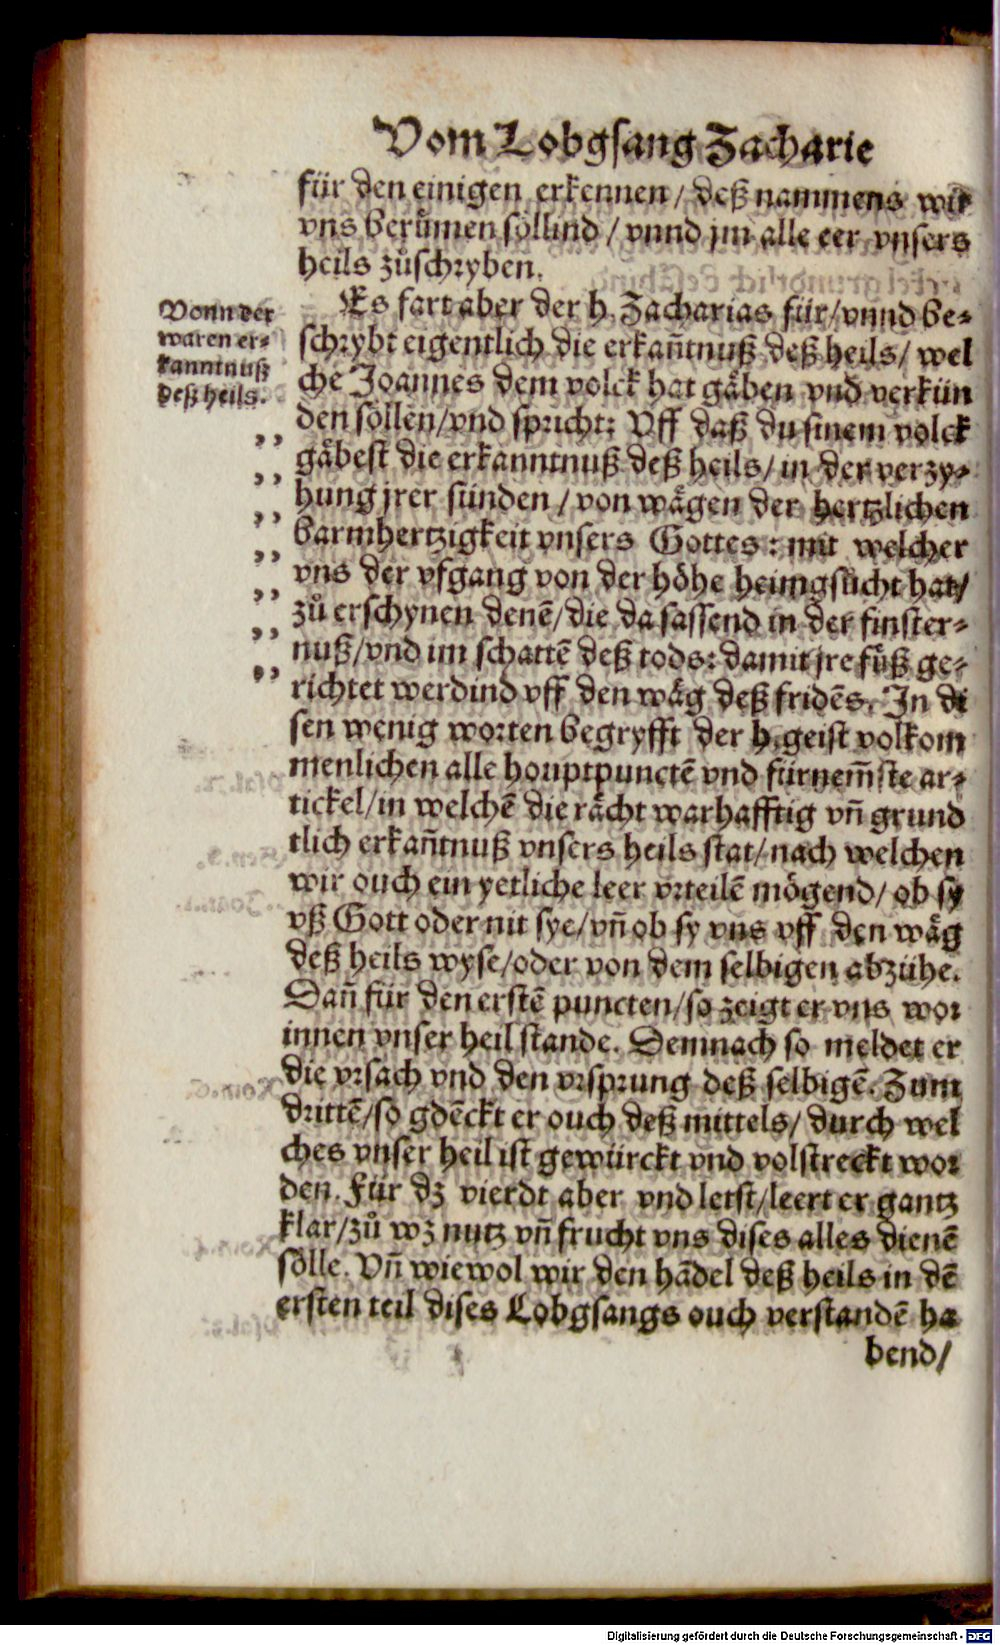 Vom Lobgsang Zacharie
für den einigen erkennen / deß nammens wir
vns berůmen söllind / vnnd jm alle eer vnsers
heils zůschryben.
Es fart aber der h. Zacharias für / vnnd be⸗
Vonn der
waren er⸗
kanntnuß
deß heils.
schrybt eigentlich die erkan̄tnuß deß heils / wel
che Joannes dem volck hat gäben vnd verkün
den söllen / vnd spricht: Vff daß du sinem volck
gäbest die erkanntnuß deß heils / in der verzy⸗
hung jrer sünden / von wägen der hertzlichen
barmhertzigkeit vnsers Gottes: mit welcher
vns der vfgang von der höhe heimgsücht hat /
zů erschynen denē / die da sassend in der finster⸗
nuß / vnd im schattē deß tods: damit jre füß ge⸗
richtet werdind vff den wäg deß fridēs. In di
sen wenig worten begryfft der h. geist volkom
menlichen alle houptpunctē vnd fürnem̄ste ar⸗
tickel / in welchē die rächt warhafftig vn̄ grund
tlich erkan̄tnuß vnsers heils stat / nach welchen
wir ouch ein yetliche leer vrteilē mögend / ob sy
vß Gott oder nit sye / vn̄ ob sy vns vff den wäg
deß heils wyse / oder von dem selbigen abzühe.
Dan̄ für den erstē puncten / so zeigt er vns wor
innen vnser heil stande. Demnach so meldet er
die vrsach vnd den vrsprung deß selbigē. Zum
drittē / so gdēckt er ouch deß mittels / durch wel
ches vnser heil ist gewürckt vnd volstreckt wor
den. Für dz vierdt aber vnd letst / leert er gantz
klar / zů wz nutz vn̄ frucht vns dises alles dienē
sölle. Vn̄ wiewol wir den hādel deß heils in dē
ersten teil dises Lobgsangs ouch verstandē ha
bend /
Digitalisierung gefördert durch die Deutsche Forschungsgemeinschaft - DFG